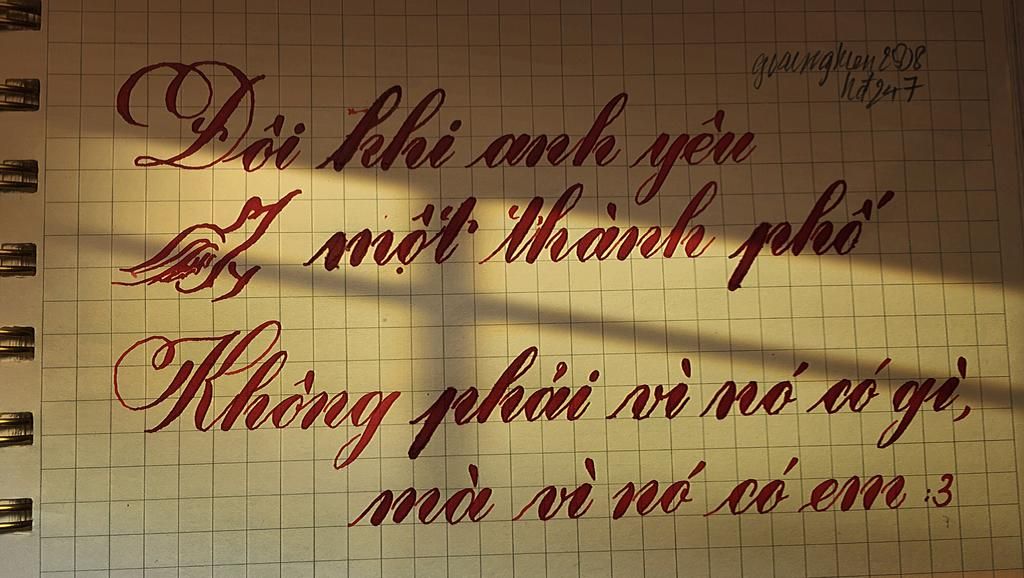 Đôi khi anh yêu
một thành phố
Không phải vì nó có gì,
mà vì nó có em :3